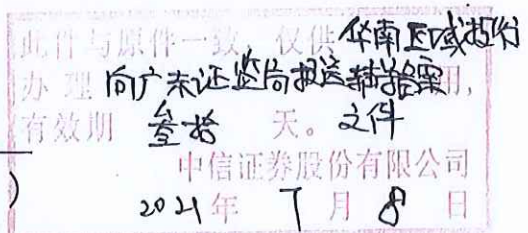 此件与原件一致，仅供华南区域投行
办理向广东证监局报送辅导备案用，
有效期 叁拾 天。文件
中信证券股份有限公司
2021年7月8日
)